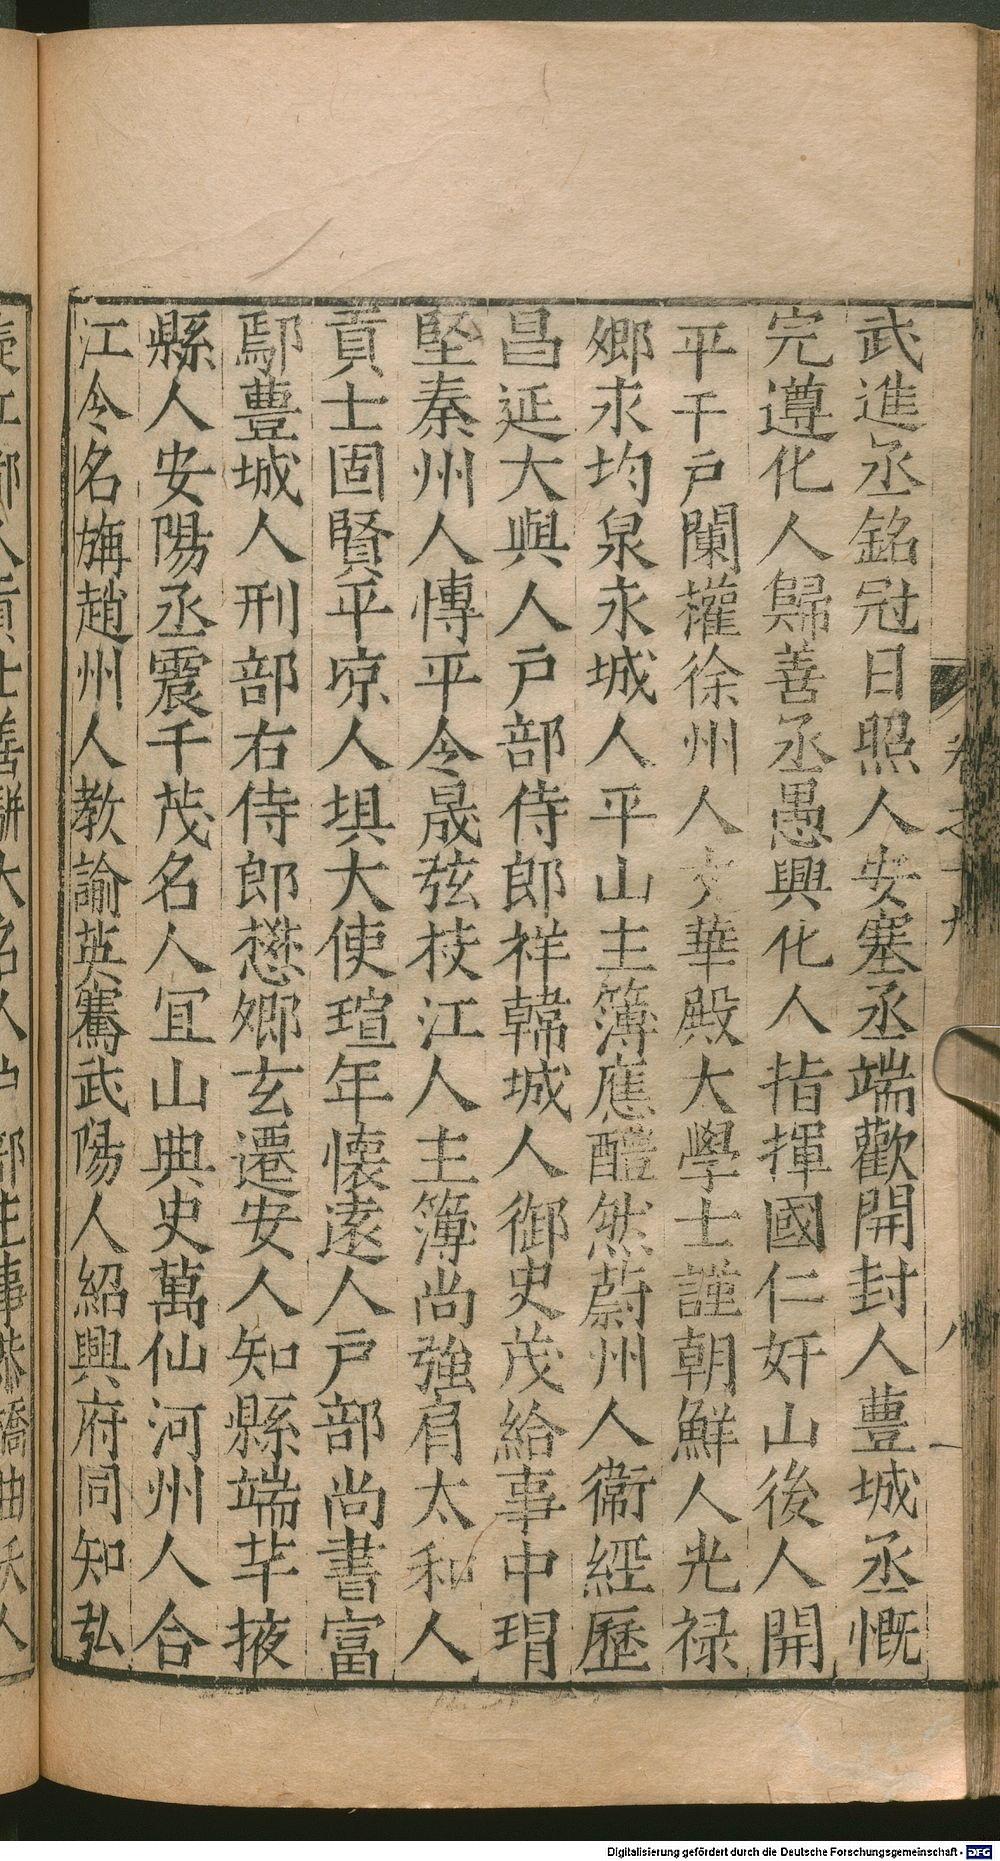 武進丞銘冠日照人安塞丞端歡開封人豊城丞慨
完遵化人歸善丞愚興化人指揮國仁奸山後人開
平千戶闌權徐州人文華殿大學士謹朝鮮人光祿
鄉求均泉永城人平山主簿應醴然蔚州人衞經歷
昌延大與人戶部侍郎祥韓城人御史茂給事中瑁
堅秦州人慱平令晟弦枝江人主簿尚強肩太和人
貢士固賢平凉人垻大使瑄年懷遠人戶部尚書富
鄢豊城人刑部右侍郎懋鄉玄遷安人知縣端芊掖
縣人安陽丞震千茂名人宜山典史萬仙河州人合
江令名旃趙州人教諭英騫武陽人紹興府同知弘